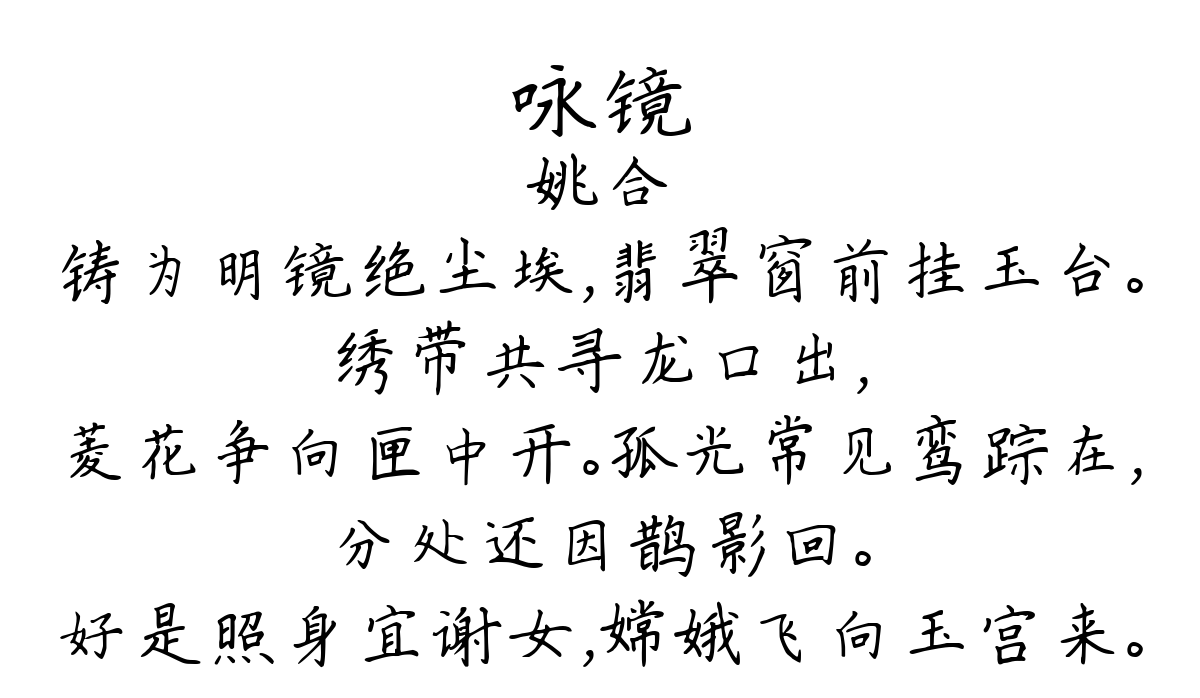 咏镜
姚合
铸为明镜绝尘埃,翡翠窗前挂玉台。
绣带共寻龙口出,
菱花争向匣中开。孤光常见鸾踪在,
分处还因鹊影回。
好是照身宜谢女,嫦娥飞向玉宫来。